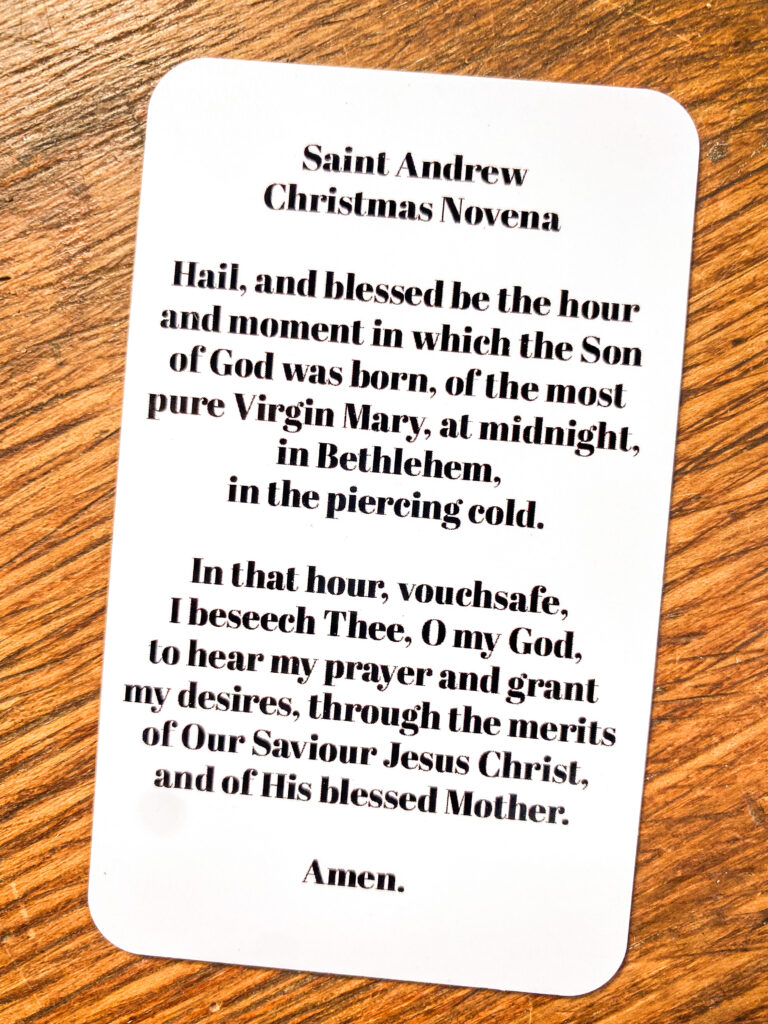 Saint Andrew
Christmas Novena
Hail, and blessed be the hour
and moment in which the Son
of God was born, of the most
pure Virgin Mary, at midnight,
in Bethlehem,
in the piercing cold.
In that hour, vouchsafe,
I beseech Thee, O my God,
to hear my prayer and grant
my desires, through the merits
of Our Saviour Jesus Christ,
and of His blessed Mother.
Amen.